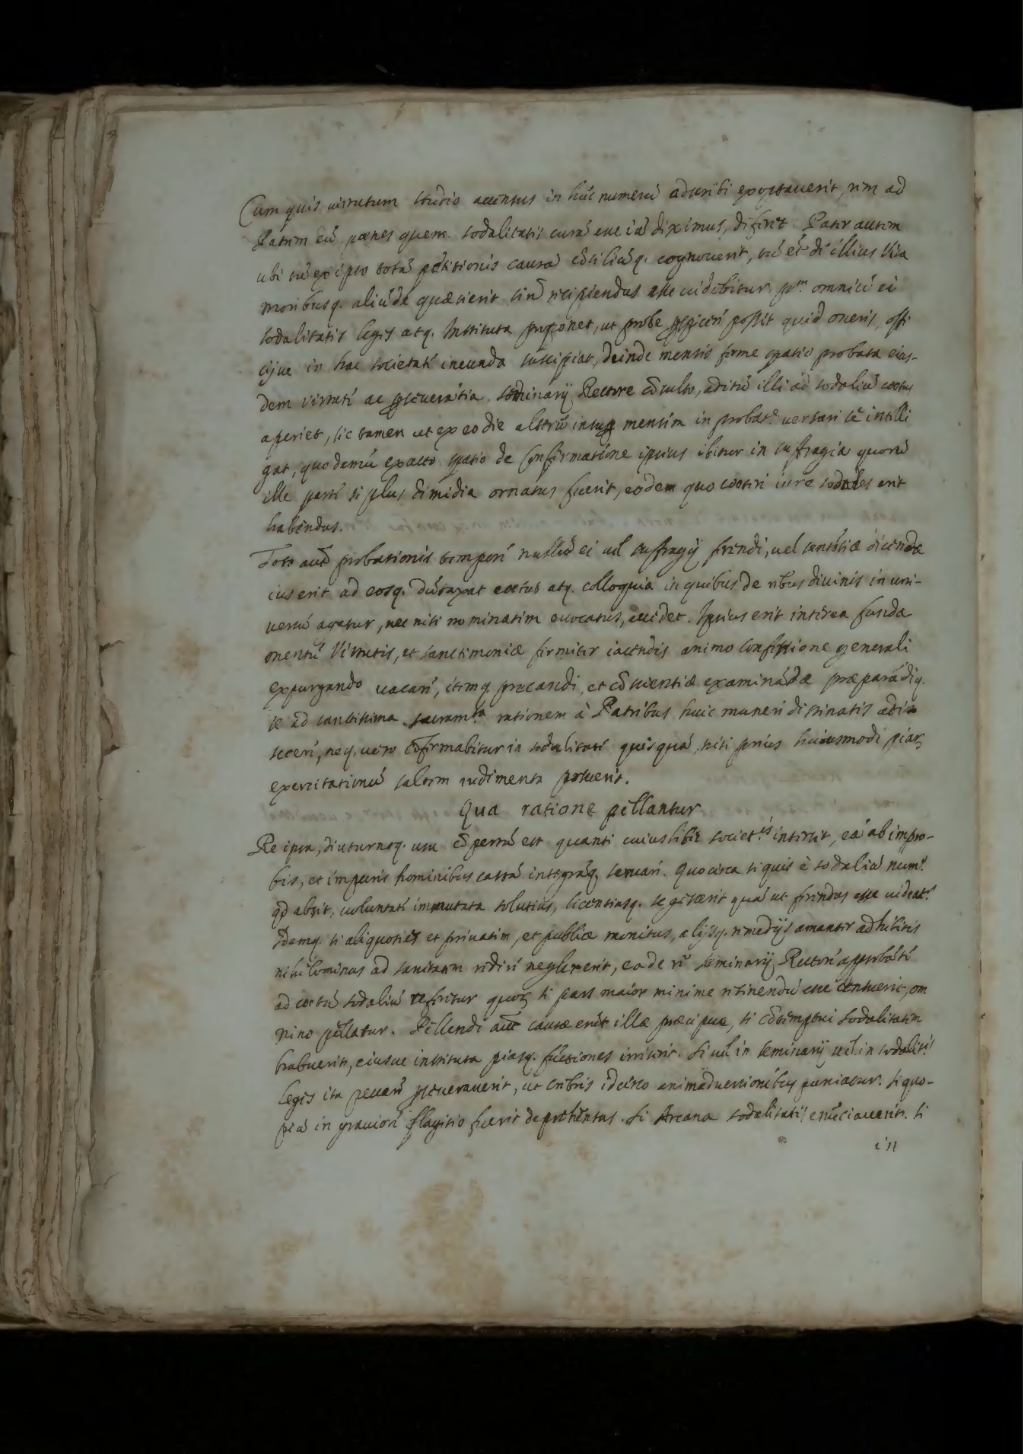 Cum quis virtutum studio accensus in hūc numerū adscribi exoptaverit, rem ad
Patrem eū, penes quem sodalitatis curā esse iā diximus, deferet. Pater autem
ubi tū ex ipso totā petitionis causā cōsiliūq. cognoverit, tū et de illius vita
moribusq. aliūde quæsierit sinē recipiendus esse videbitur pm. omniū ei
sodalitatis leges atq. Instituta proponet, ut probe pspicere possit quid oneris, offi
cijve in hac societate ineunda suscipiat, deinde mensis ferme spatio probata eius-
dem virtute ac pseverātia. seminarij Rectore cōsulto, aditū illi ad sodaliū coetus
aperiet, sic tamen ut ex eo die alterū integ mensem in probat.e versari se intelli
gat, quo demū exacto spatio de Confirmatione ipsius ibitur in suffragia quorū
ille parte si plus dimidia ornatus fuerit, eodem quo coeteri iure sodales erit
habendus.
Toto autē probationis tempore nullū ei vel suffragij ferendi, vel sententiæ dicendæ
ius erit ad eosq. dūtaxat coetus atq. colloquia in quibus de rebus divinis in uni-
versū agatur, nec nisi nominatim evocatus, accedet. Ipsius erit interea funda
mentū Virtutis, et sanctimoniæ firmiter iaciendis animo Confessione generali
expurgando vacare, itemq precandi, et cōscientiæ examinādæ præparādiq.
se ad sanctissima sacramta rationem à Patribus huic muneri destinatis addi
scere, neq. vero cōfirmabitur in sodalitate quisquā, nisi prius huiusmodi piar
exercitationū saltem rudimenta posuerit.
Qua ratione pellantur
Re ipsa, diuturnoq. usu cōpertū est quanti cuiuslibet societtis intersit, eā ab impro-
bis, et impuris hominibus castā integrāq. servari. Quocirca si quis è sodaliū num.o
qd absit, voluntate immutata solutius, licentiusq. se gesserit quā ut ferendus esse videat.r
Idemq. si aliquoties et privatim, et publice monitus, alijsq. remedijs amanter adhibitis
nihilominus ad sanitatem redire neglexerit, ea de re seminarij Rectori approbāte
ad coetū sodaliū referetur quor si pars maior minime retinendū esse censuerit, om
nino pellatur. Pellendi autē causæ erūt illæ præcipuæ, si cōtemptui sodalitatem
habuerit, eiusve instituta piasq. functiones irriserit. Si vel in seminarij vel in sodalit.s
leges ita peccare pseveraverit, ut crebris idcirco animadversionibus puniatur. si quo-
piā in graviori flagitio fuerit deprehensus. Si Arcana sodalitatis enūciaverit. si
in